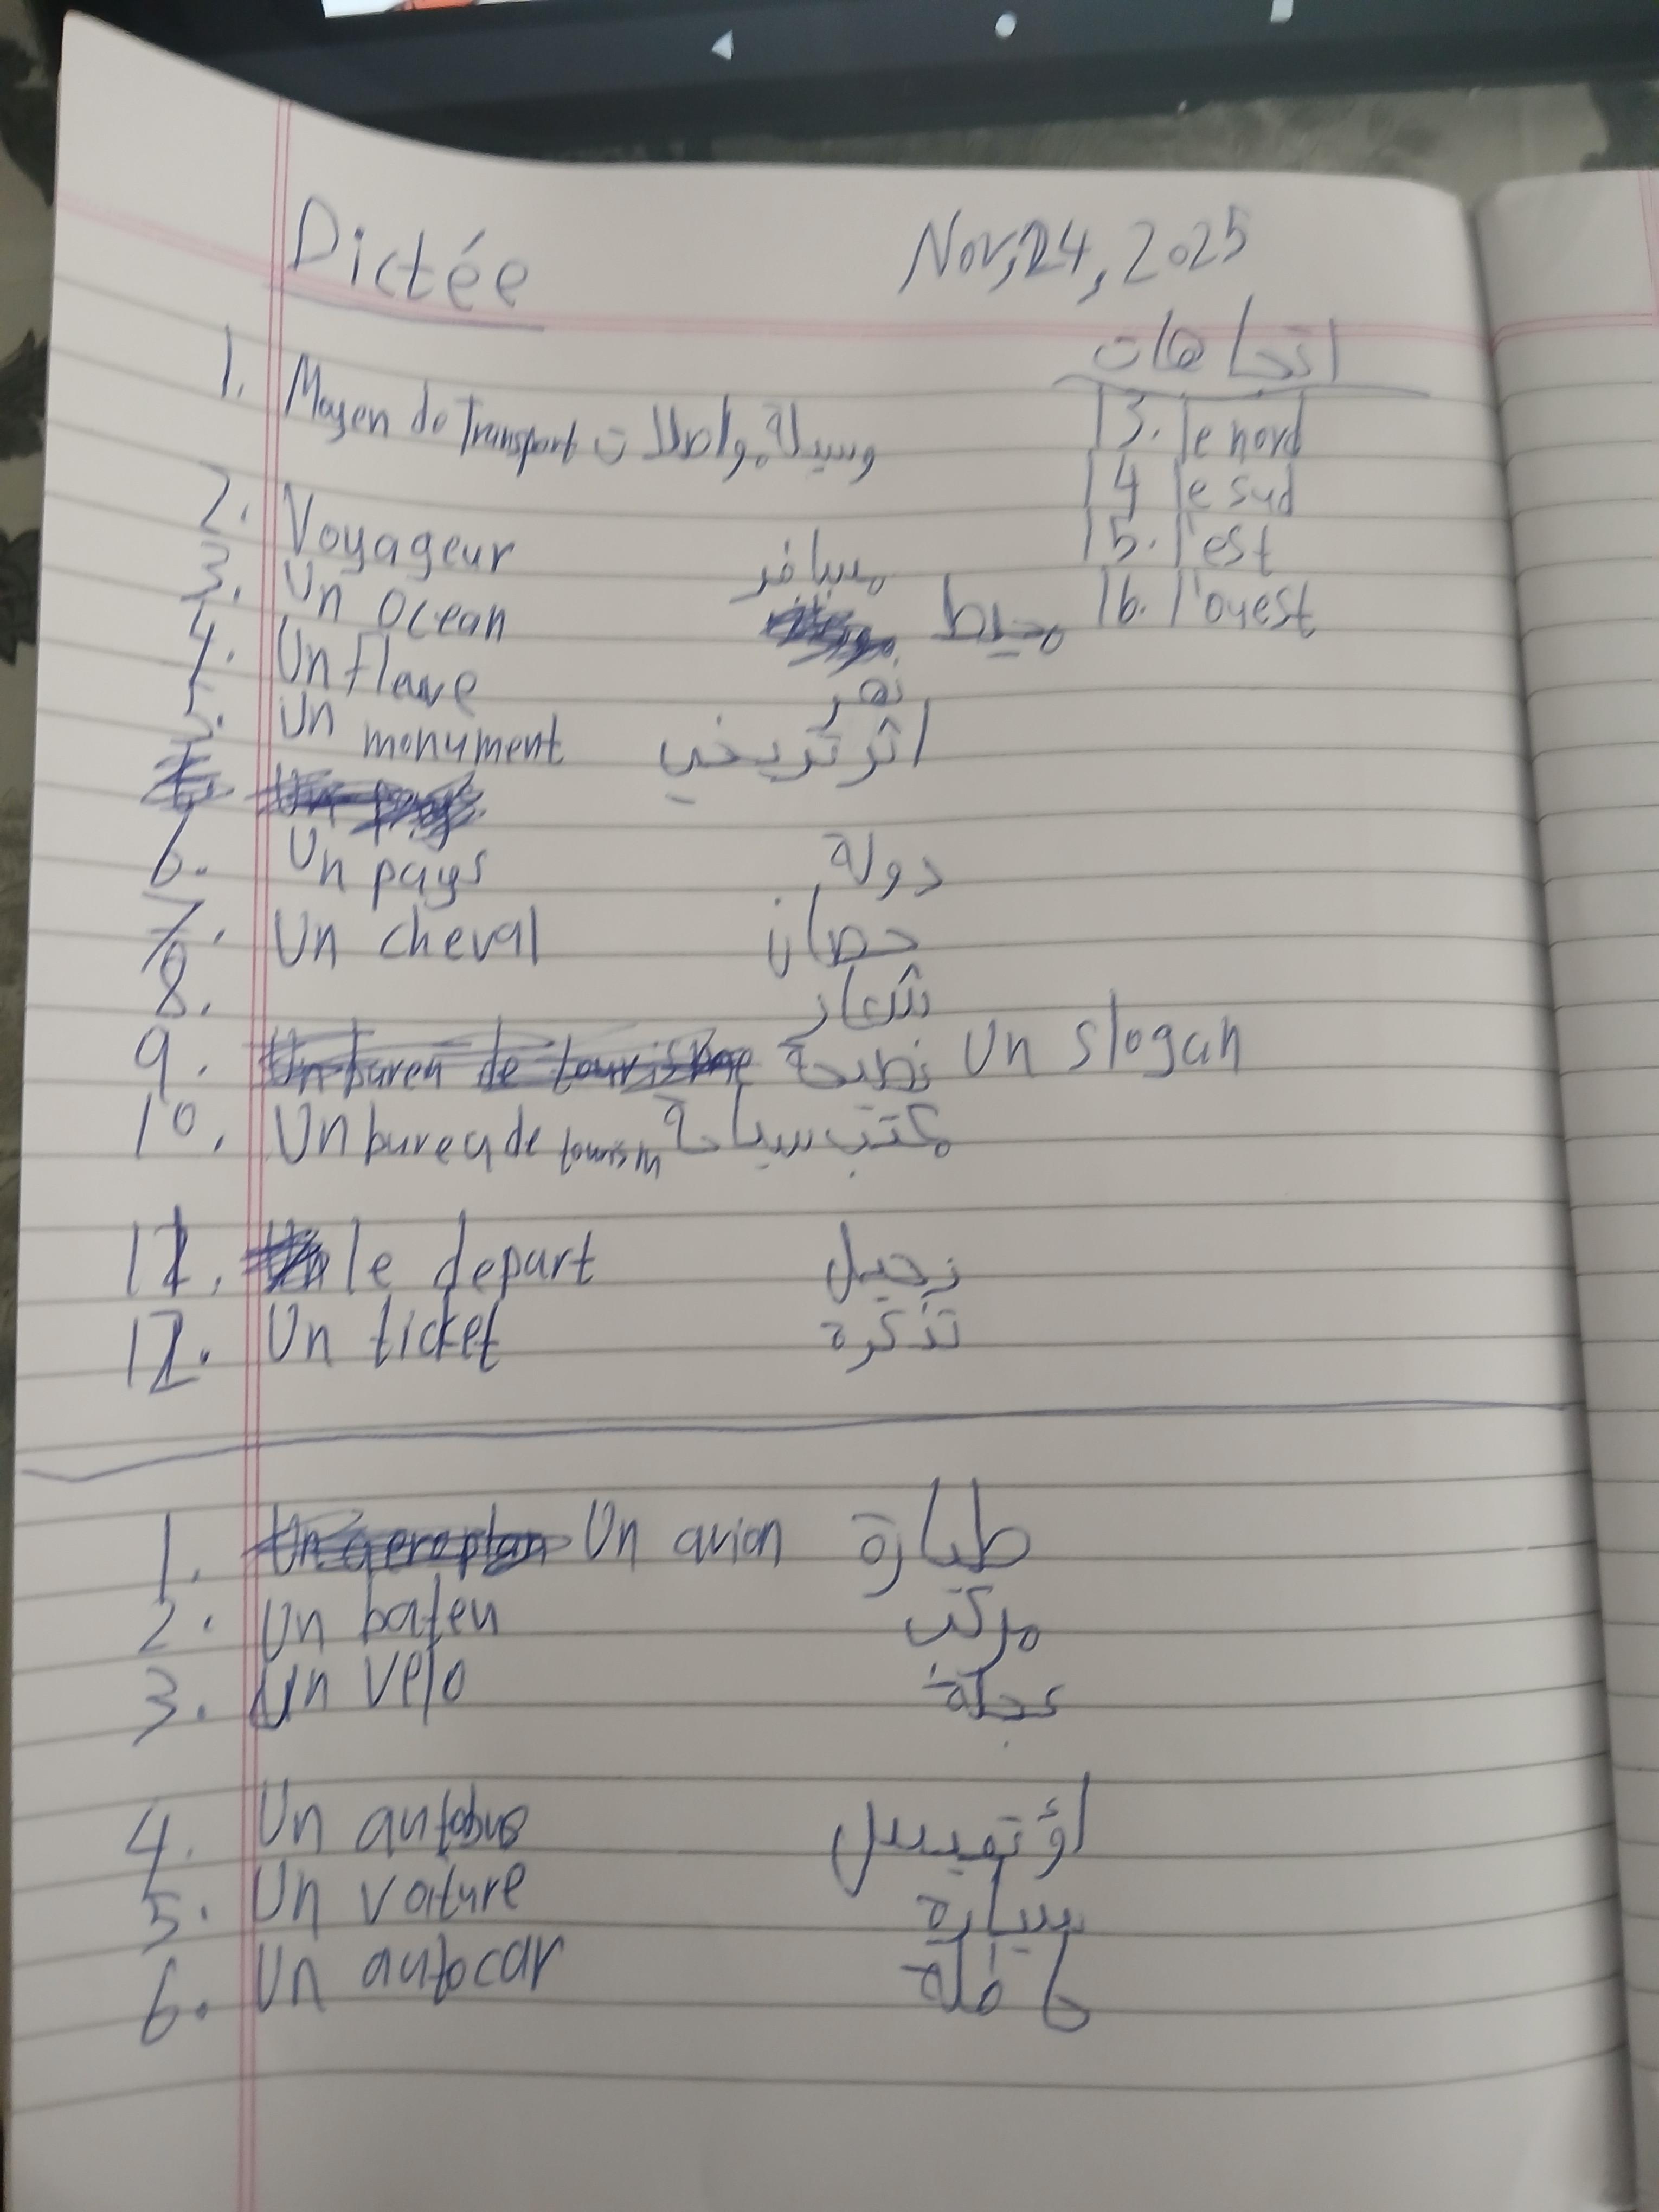 Dictée Nov, 24, 2025
اتجاهات
1. Moyen de Transport وسيلة مواصلات
13. le nord
14 le sud
15. l'est
16. l'ouest
2. Voyageur مسافر
3. Un ocean محيط
4. Un flave نهر
5. Un monument اثر تريخي
6. Un pays دولة
7. Un cheval حصان
8. شعار
9. نصيحة Un slogan
10. Un bureau de tourism مكتب سياحة
11. le depart
12. Un ticket تذكرة
1. Un avion طيارة
2. Un bateu مركب
3. Un velo عجلة
4. Un autobus أوتبيس
5. Un voiture سيارة
6. Un autocar حافلة